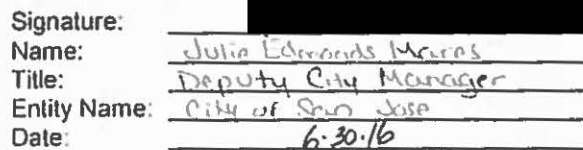 Signature:
Name: Julie Edmonds Mares
Title: Deputy City Manager
Entity Name: City of San Jose
Date: 6.30.16